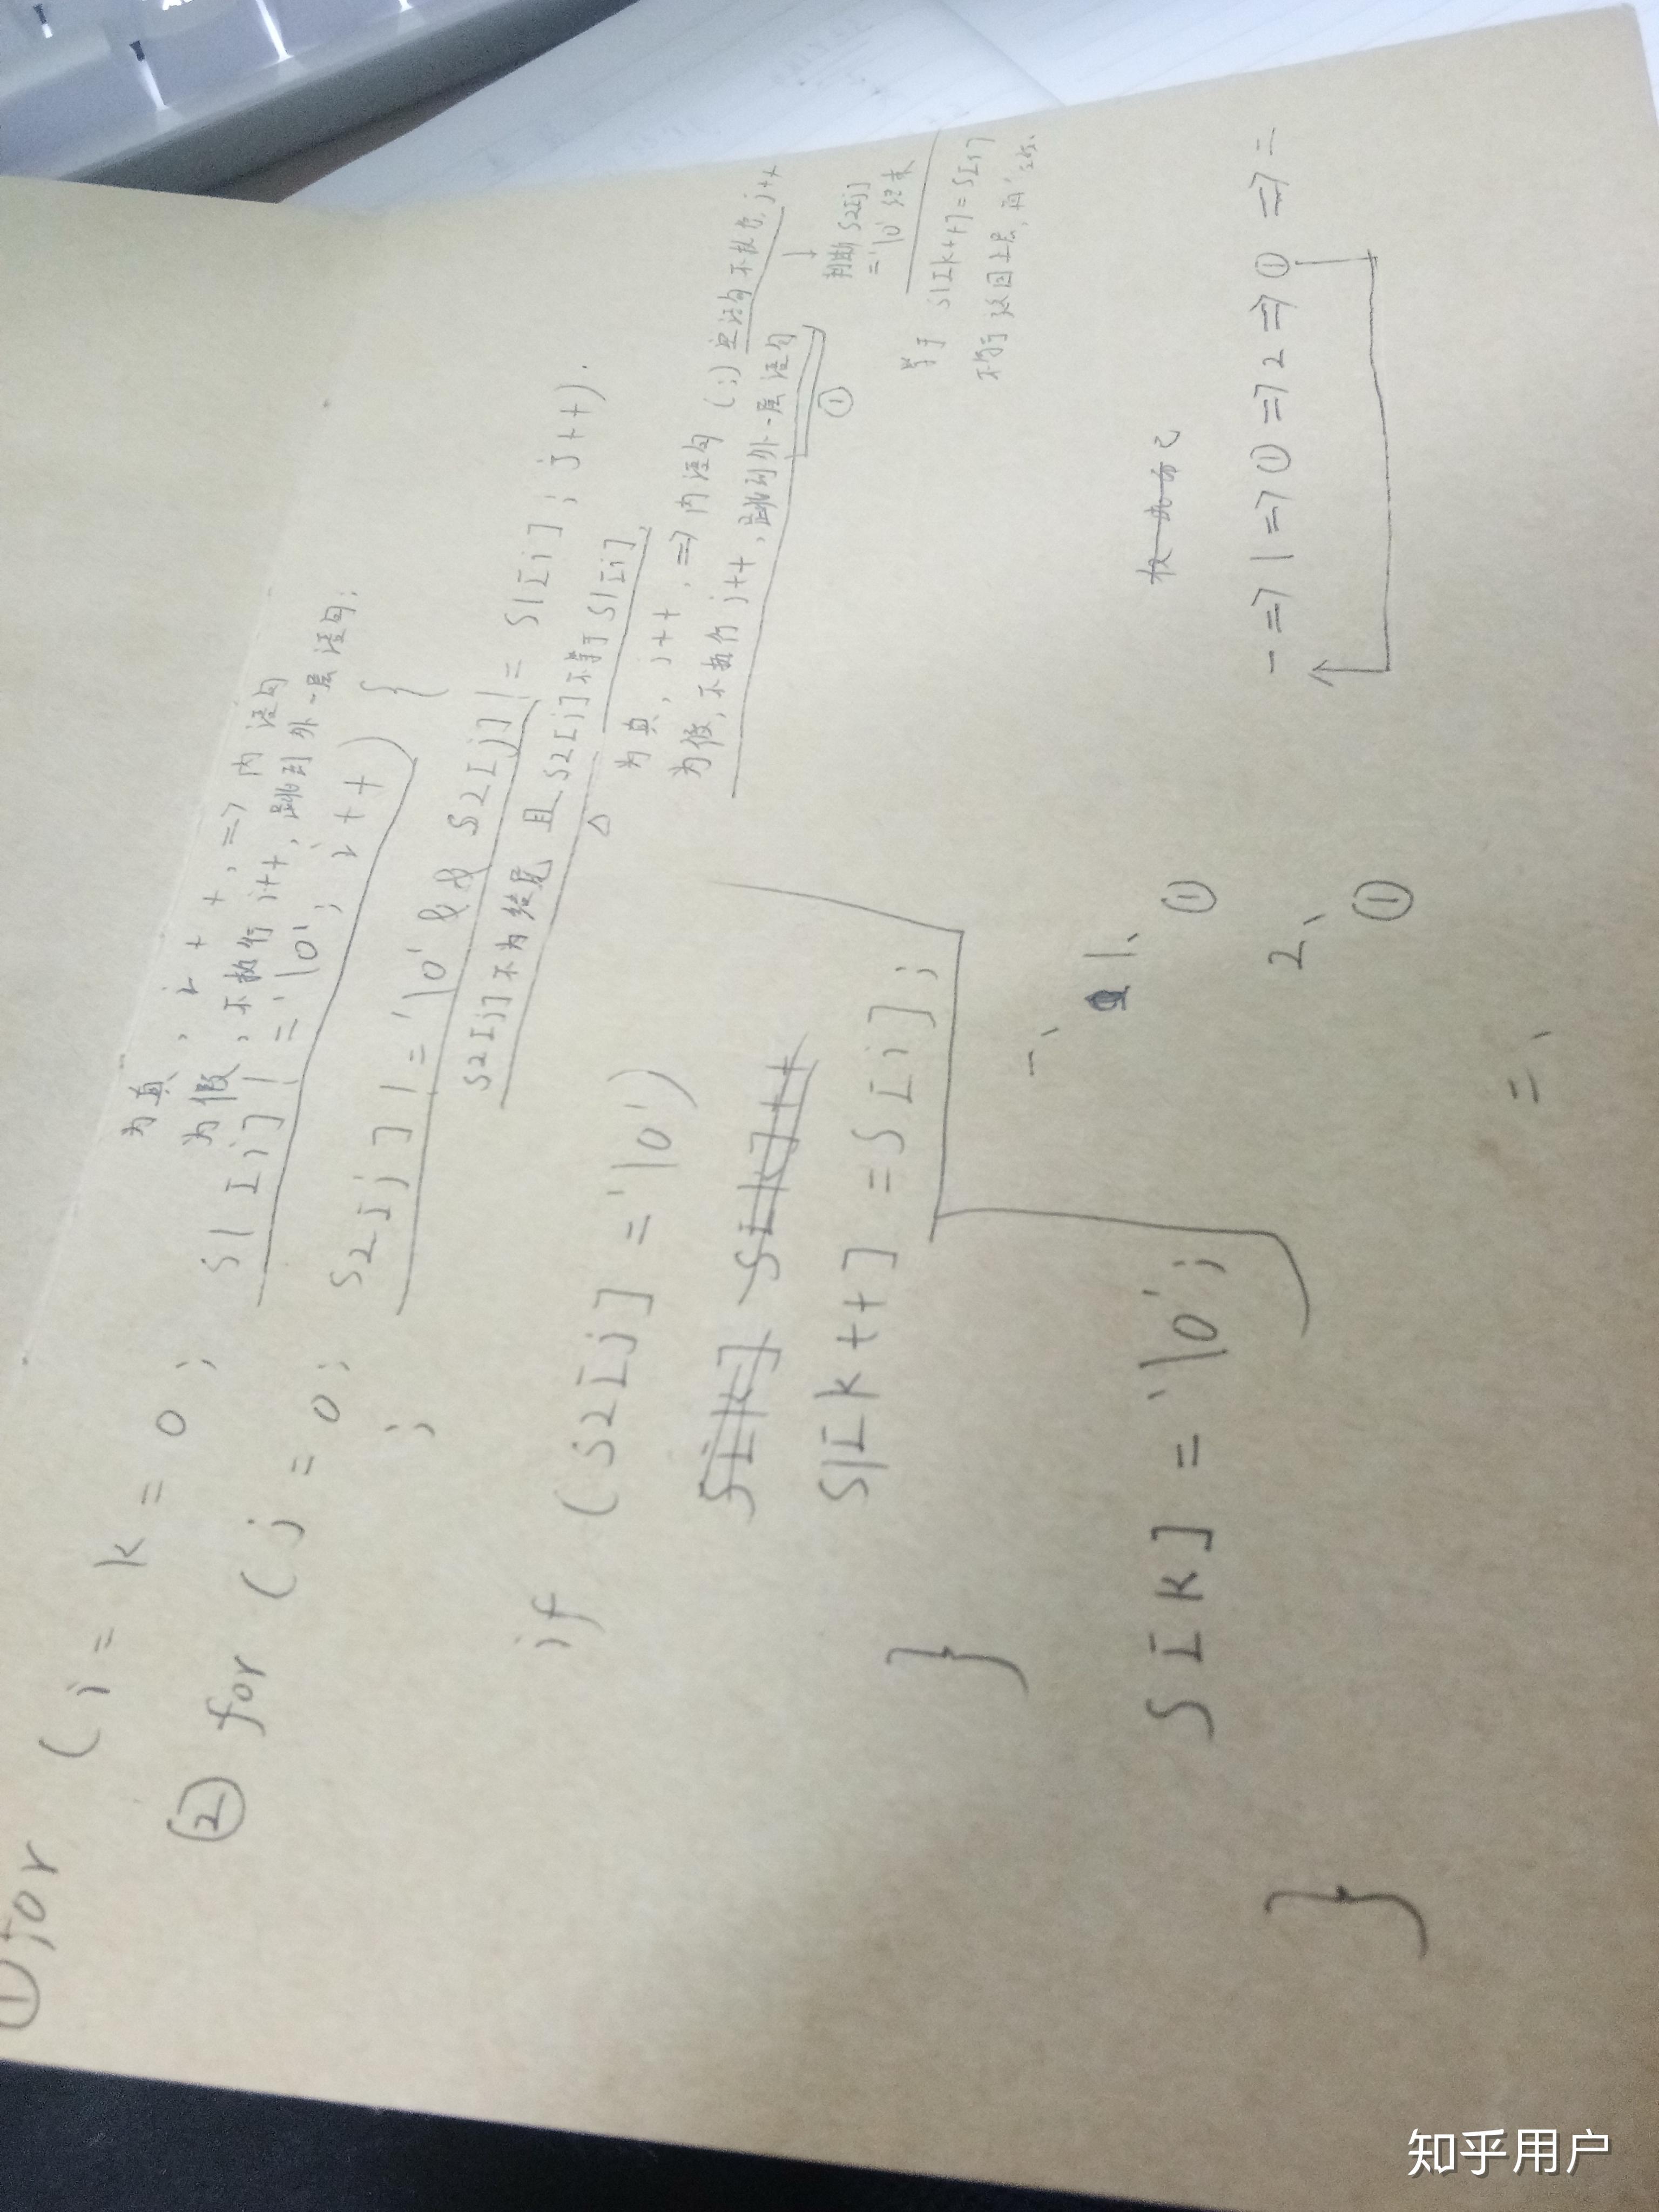 ①for (i = k = 0; s1[i] != '\0'; i++) {
为真, i++, => 内语句
为假, 不执行i++, 跳到外一层语句;
② for (j = 0; s2[j] != '\0' && s2[j] != s1[i]; j++).
;
s2[j]不为结尾 且 s2[j]不等于s1[i]
为真, j++, => 内语句 (;) 空语句不执行, j++
为假, 不执行j++, 跳到外一层语句
①
判断s2[j]
='\0' 结束
等于 s1[k++] = s[i]
不等于 返回上层, 再
if (s2[j] = '\0')
s1[k++] = s[i];
}
s[k] = '\0';
}
一、
1、
①
2、
①
二、
一 => 1 => ① => 2 => ① => 二
知乎用户